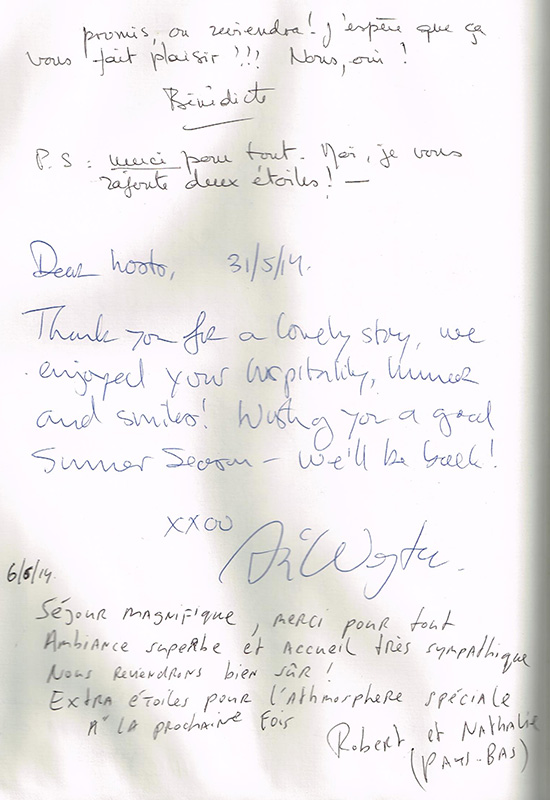 promis, on reviendra! j'espère que ça
vous fait plaisir !!! Nous, oui !
Bénédicte
P.S : merci pour tout. Moi, je vous
rajoute deux étoiles! —
Dear hosts, 31/5/14.
Thank you for a lovely stay, we
enjoyed your hospitality, humor
and smiles! Wishing you a good
Summer Season – We'll be back!
xxoo
6/6/14.
Séjour magnifique, merci pour tout
Ambiance superbe et accueil très sympathique
Nous reviendrons bien sûr !
Extra étoiles pour l'athmosphere spéciale
A la prochaine fois
Robert et Nathalie
(Pays-Bas)